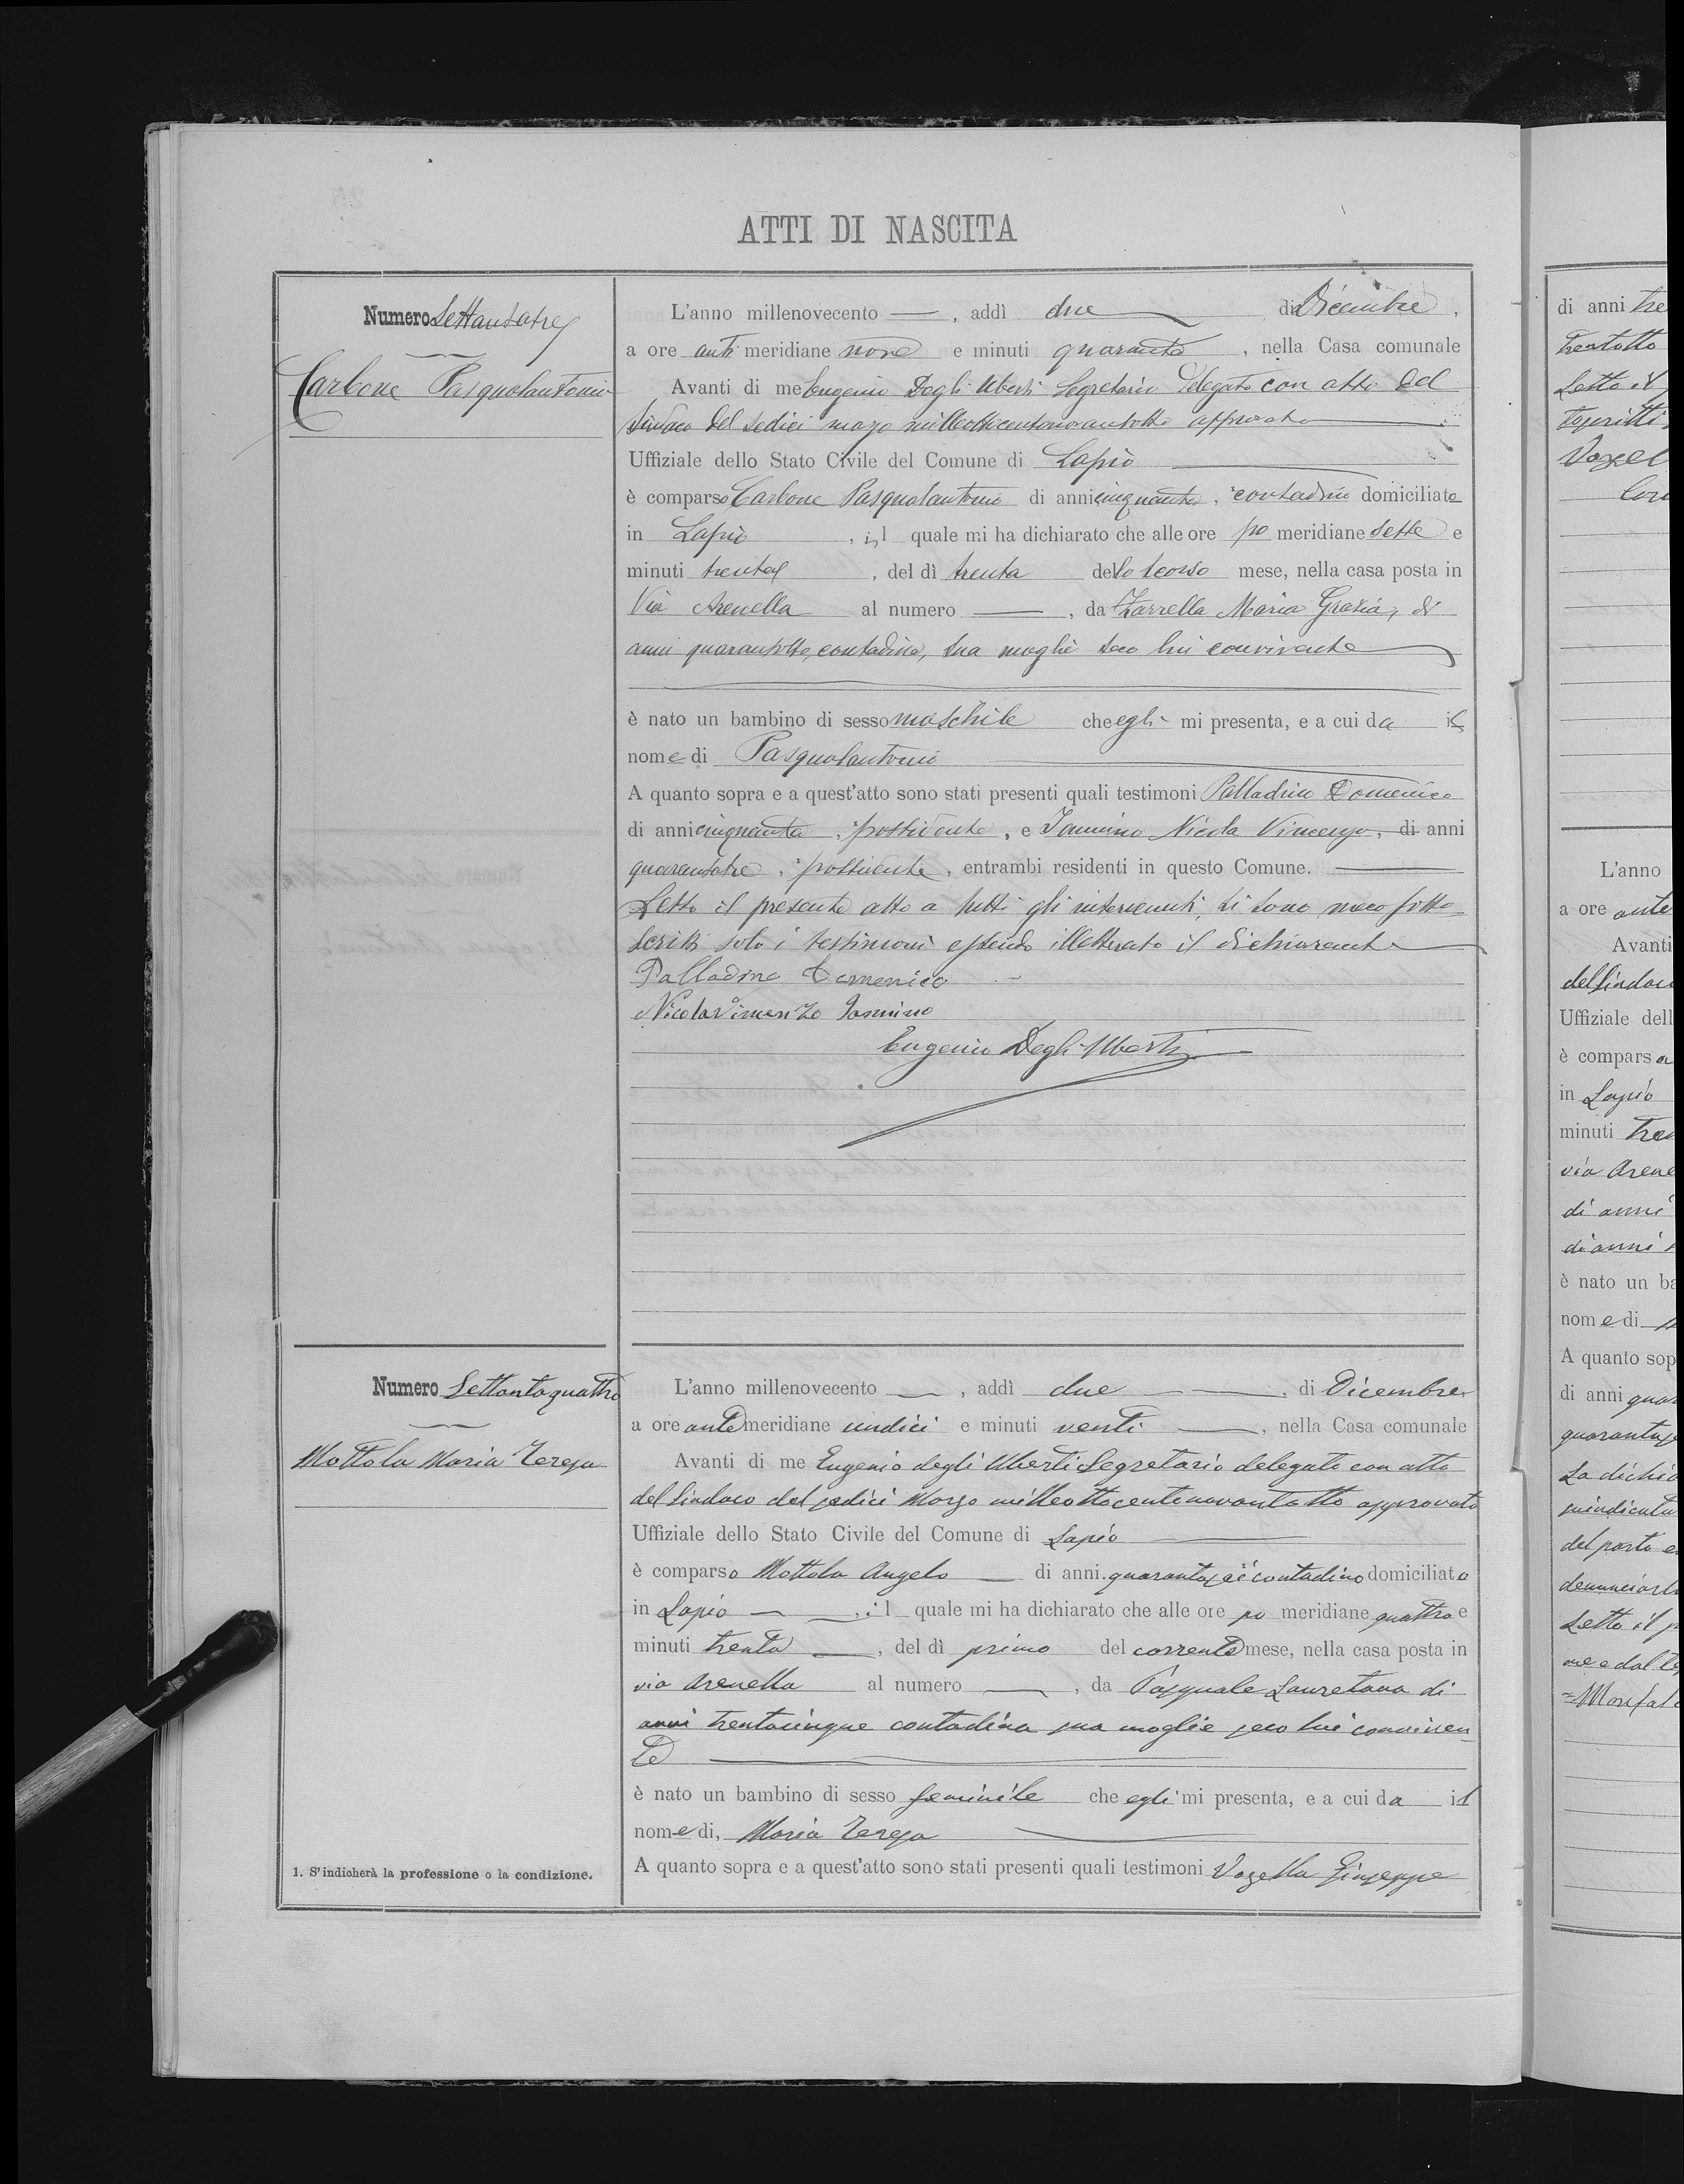 ATTI DI NASCITA
Numero Settantatre
Carbone Pasqualantonio
L'anno millenovecento — , addì due di Dicembre,
a ore anti meridiane nove e minuti quaranta , nella Casa comunale
Avanti di me Eugenio Degli Uberti Segretario delegato con atto del
Sindaco del sedici marzo milleottocentonovantotto approvato
Uffiziale dello Stato Civile del Comune di Lapio
è comparso Carbone Pasqualantonio di anni cinquanta, contadino domiciliato
in Lapio , il quale mi ha dichiarato che alle ore po meridiane sette e
minuti trenta , del dì trenta dello scorso mese, nella casa posta in
Via Arenella al numero — , da Zarrella Maria Grazia, di
anni quarantotto, contadina, sua moglie seco lui convivente
è nato un bambino di sesso maschile che egli mi presenta, e a cui da il
nome di Pasqualantonio
A quanto sopra e a quest'atto sono stati presenti quali testimoni Palladino Domenico
di anni cinquanta, possidente, e Iannino Nicola Vincenzo, di anni
quarantatre, possidente, entrambi residenti in questo Comune.
Letto il presente atto a tutti gli intervenuti, si sono meco sotto-
scritti solo i testimoni essendo illetterato il dichiarante
Palladino Domenico
Nicola Vincenzo Iannino
Eugenio Degli Uberti
Numero Settantaquattro
Mottola Maria Teresa
L'anno millenovecento — , addì due — , di Dicembre
a ore ante meridiane undici e minuti venti — , nella Casa comunale
Avanti di me Eugenio degli Uberti Segretario delegato con atto
del Sindaco del sedici Marzo milleottocentonovantotto approvato
Uffiziale dello Stato Civile del Comune di Lapio
è comparso Mottola Angelo — di anni quarantasei contadino domiciliato
in Lapio — , il quale mi ha dichiarato che alle ore po meridiane quattro e
minuti trenta — , del dì primo del corrente mese, nella casa posta in
via Arenella al numero — , da Pasquale Lauretana di
anni trentacinque contadina sua moglie seco lui conviven-
te
è nato un bambino di sesso feminile che egli mi presenta, e a cui da il
nome di, Maria Teresa
A quanto sopra e a quest'atto sono stati presenti quali testimoni Vozella Giuseppe
1. S'indicherà la professione o la condizione.
di anni tre
trentotto
Letto il
L'anno
a ore ante
Avanti
del Sindaco
Uffiziale dell
è comparsa
in Lapio
minuti tre
via Arene
di anni
di anni
è nato un ba
nome di
A quanto sop
di anni quar
La dichia
del parto e
Letto il p